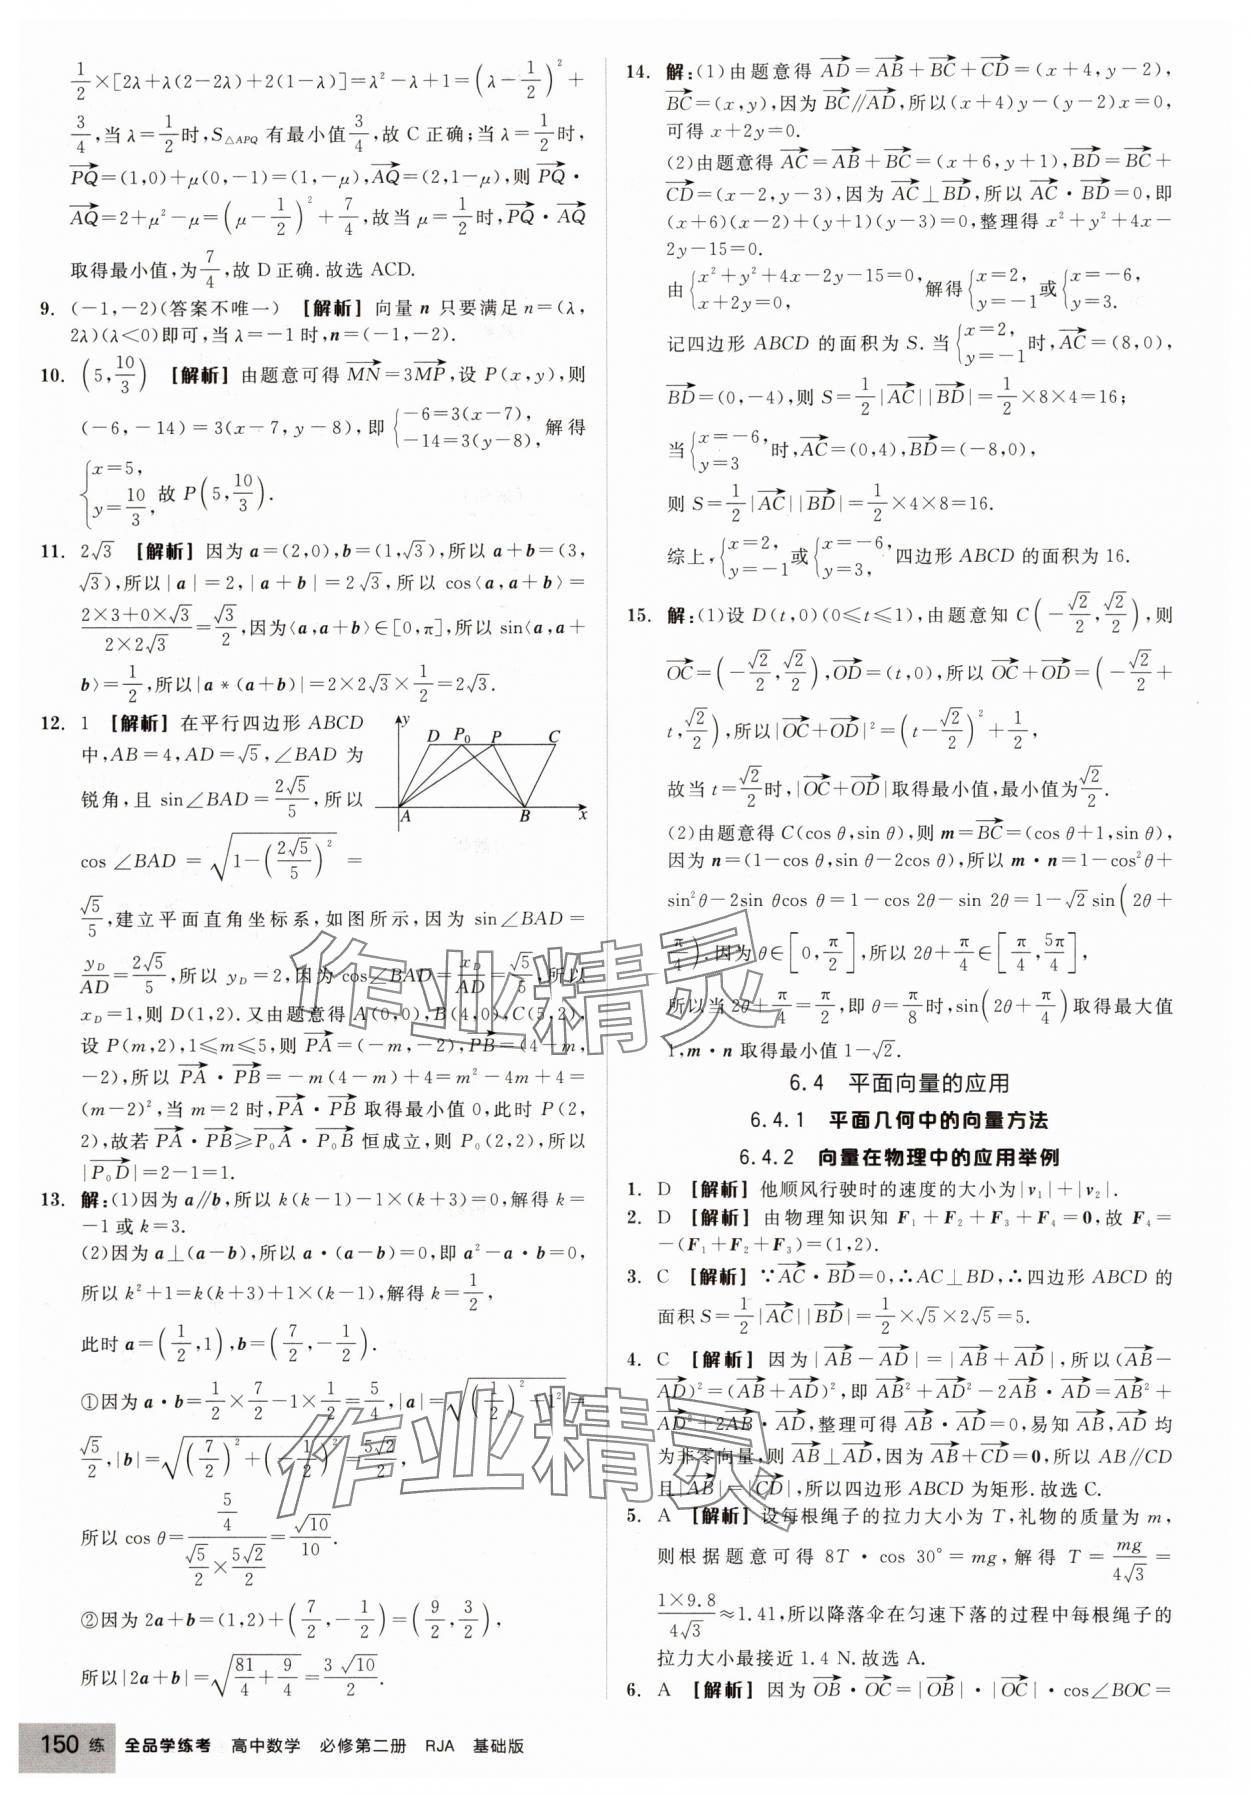 1/2×[2λ+λ(2-2λ)+2(1-λ)]=λ²-λ+1=(λ-1/2)²+
3/4,当 λ=1/2时,S△APQ 有最小值3/4,故 C 正确;当 λ=1/2时,
PQ→=(1,0)+μ(0,-1)=(1,-μ),AQ→=(2,1-μ),则 PQ→·
AQ→=2+μ²-μ=(μ-1/2)²+7/4,故当 μ=1/2时,PQ→·AQ→
取得最小值,为7/4,故 D 正确.故选 ACD.
9. (-1,-2)(答案不唯一) [解析] 向量 n 只要满足 n=(λ,
2λ)(λ<0)即可,当 λ=-1 时,n=(-1,-2).
10. (5,10/3) [解析] 由题意可得 MN→=3MP→,设 P(x,y),则
(-6,-14)=3(x-7,y-8),即{-6=3(x-7), -14=3(y-8),解得
{x=5, y=10/3,故 P(5,10/3).
11. 2√3 [解析] 因为 a=(2,0),b=(1,√3),所以 a+b=(3,
√3),所以|a|=2,|a+b|=2√3,所以 cos〈a,a+b〉=
(2×3+0×√3)/(2×2√3)=√3/2,因为〈a,a+b〉∈[0,π],所以 sin〈a,a+
b〉=1/2,所以|a*(a+b)|=2×2√3×1/2=2√3.
12. 1 [解析] 在平行四边形 ABCD
中,AB=4,AD=√5,∠BAD 为
锐角,且 sin∠BAD=2√5/5,所以
cos∠BAD=√(1-(2√5/5)²)=
y D P₀ P C A B x
√5/5,建立平面直角坐标系,如图所示,因为 sin∠BAD=
y_D/AD=2√5/5,所以 y_D=2,因为 cos∠BAD=x_D/AD=√5/5,所以
x_D=1,则 D(1,2).又由题意得 A(0,0),B(4,0),C(5,2),
设 P(m,2),1≤m≤5,则 PA→=(-m,-2),PB→=(4-m,
-2),所以 PA→·PB→=-m(4-m)+4=m²-4m+4=
(m-2)²,当 m=2 时,PA→·PB→ 取得最小值 0,此时 P(2,
2),故若 PA→·PB→≥P₀A→·P₀B→ 恒成立,则 P₀(2,2),所以
|P₀D→|=2-1=1.
13. 解:(1)因为 a∥b,所以 k(k-1)-1×(k+3)=0,解得 k=
-1 或 k=3.
(2)因为 a⊥(a-b),所以 a·(a-b)=0,即 a²-a·b=0,
所以 k²+1=k(k+3)+1×(k-1),解得 k=1/2,
此时 a=(1/2,1),b=(7/2,-1/2).
①因为 a·b=1/2×7/2-1×1/2=5/4,|a|=√((1/2)²+1²)=
√5/2,|b|=√((7/2)²+(-1/2)²)=5√2/2,
所以 cos θ=(5/4)/(√5/2×5√2/2)=√10/10.
②因为 2a+b=(1,2)+(7/2,-1/2)=(9/2,3/2),
所以|2a+b|=√(81/4+9/4)=3√10/2.
14. 解:(1)由题意得 AD→=AB→+BC→+CD→=(x+4,y-2),
BC→=(x,y),因为 BC→∥AD→,所以(x+4)y-(y-2)x=0,
可得 x+2y=0.
(2)由题意得 AC→=AB→+BC→=(x+6,y+1),BD→=BC→+
CD→=(x-2,y-3),因为 AC→⊥BD→,所以 AC→·BD→=0,即
(x+6)(x-2)+(y+1)(y-3)=0,整理得 x²+y²+4x-
2y-15=0.
由{x²+y²+4x-2y-15=0, x+2y=0,解得{x=2, y=-1或{x=-6, y=3.
记四边形 ABCD 的面积为 S.当{x=2, y=-1时,AC→=(8,0),
BD→=(0,-4),则 S=1/2|AC→||BD→|=1/2×8×4=16;
当{x=-6, y=3时,AC→=(0,4),BD→=(-8,0),
则 S=1/2|AC→||BD→|=1/2×4×8=16.
综上,{x=2, y=-1或{x=-6, y=3,四边形 ABCD 的面积为 16.
15. 解:(1)设 D(t,0)(0≤t≤1),由题意知 C(-√2/2,√2/2),则
OC→=(-√2/2,√2/2),OD→=(t,0),所以 OC→+OD→=(-√2/2+
t,√2/2),所以|OC→+OD→|²=(t-√2/2)²+1/2,
故当 t=√2/2时,|OC→+OD→|取得最小值,最小值为√2/2.
(2)由题意得 C(cos θ,sin θ),则 m=BC→=(cos θ+1,sin θ),
因为 n=(1-cos θ,sin θ-2cos θ),所以 m·n=1-cos²θ+
sin²θ-2sin θcos θ=1-cos 2θ-sin 2θ=1-√2sin(2θ+
π/4),因为 θ∈[0,π/2],所以 2θ+π/4∈[π/4,5π/4],
所以当 2θ+π/4=π/2,即 θ=π/8时,sin(2θ+π/4)取得最大值
1,m·n 取得最小值 1-√2.
6.4 平面向量的应用
6.4.1 平面几何中的向量方法
6.4.2 向量在物理中的应用举例
1. D [解析] 他顺风行驶时的速度的大小为|v₁|+|v₂|.
2. D [解析] 由物理知识知 F₁+F₂+F₃+F₄=0,故 F₄=
-(F₁+F₂+F₃)=(1,2).
3. C [解析] ∵AC→·BD→=0,∴AC⊥BD,∴四边形 ABCD 的
面积 S=1/2|AC→||BD→|=1/2×√5×2√5=5.
4. C [解析] 因为|AB→-AD→|=|AB→+AD→|,所以(AB→-
AD→)²=(AB→+AD→)²,即 AB→²+AD→²-2AB→·AD→=AB→²+
AD→²+2AB→·AD→,整理可得 AB→·AD→=0,易知 AB→,AD→ 均
为非零向量,则 AB→⊥AD→,因为 AB→+CD→=0,所以 AB∥CD
且|AB→|=|CD→|,所以四边形 ABCD 为矩形.故选 C.
5. A [解析] 设每根绳子的拉力大小为 T,礼物的质量为 m,
则根据题意可得 8T·cos 30°=mg,解得 T=mg/(4√3)=
(1×9.8)/(4√3)≈1.41,所以降落伞在匀速下落的过程中每根绳子的
拉力大小最接近 1.4 N.故选 A.
6. A [解析] 因为 OB→·OC→=|OB→|·|OC→|·cos∠BOC=
作业精灵
作业精灵
150 练 全品学练考 高中数学 必修第二册 RJA 基础版